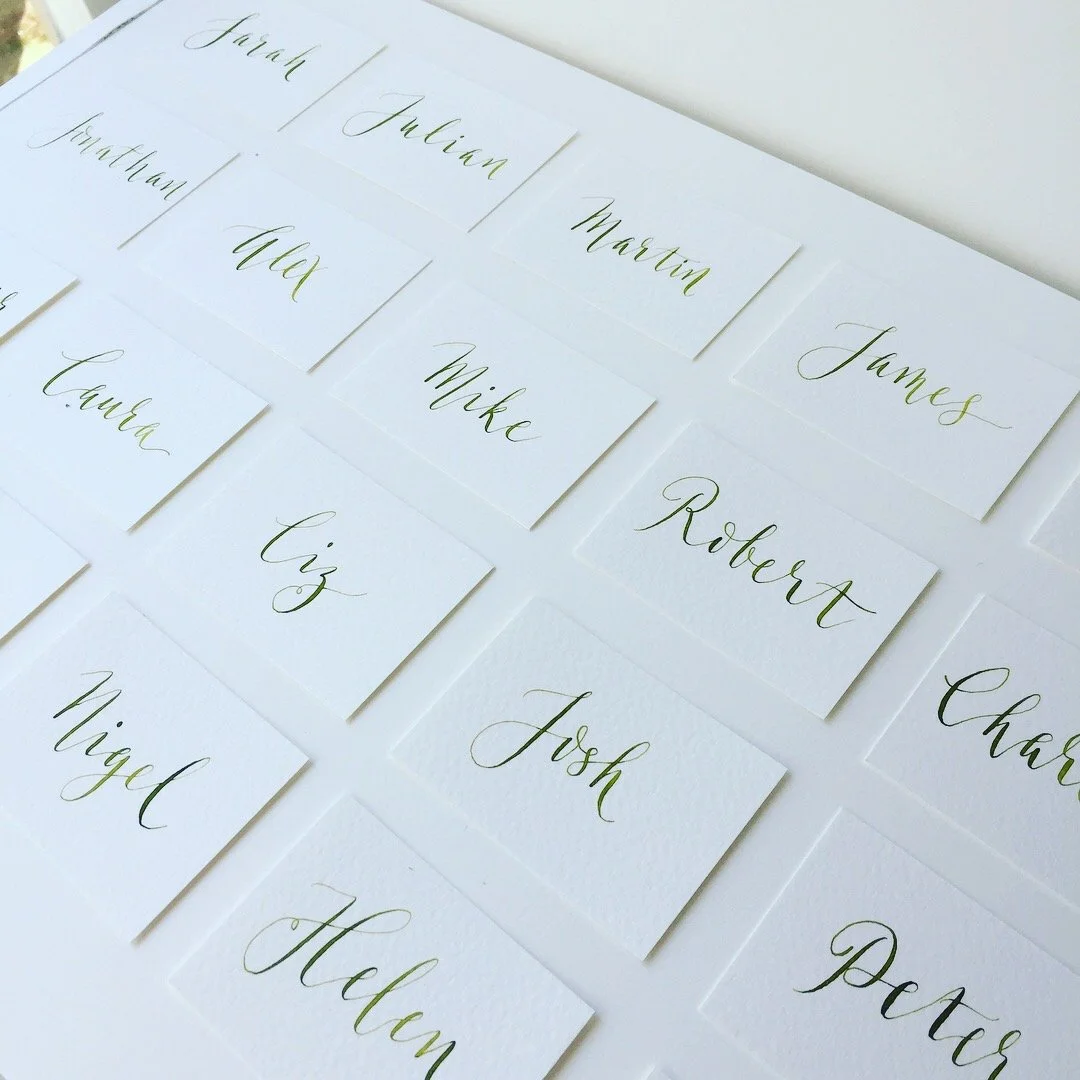 Sarah
Julian
Jonathan
Martin
Alex
James
Mike
Laura
Robert
Liz
Char
Josh
Nigel
Peter
Helen